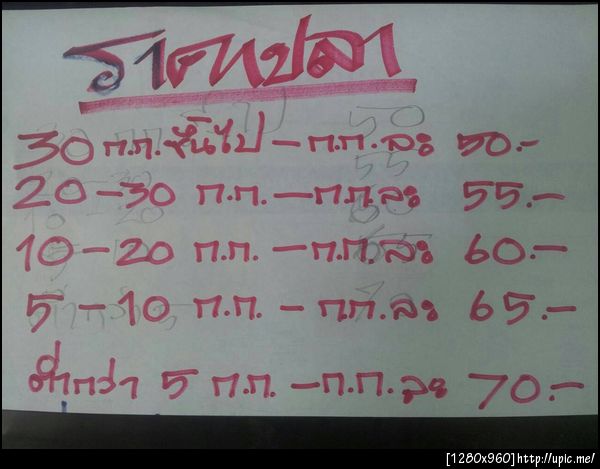 ราคาปลา
30 ก.ก. ขึ้นไป - ก.ก. ละ 50.-
20-30 ก.ก. - ก.ก. ละ 55.-
10-20 ก.ก. - ก.ก. ละ 60.-
5-10 ก.ก. - ก.ก. ละ 65.-
ต่ำกว่า 5 ก.ก. - ก.ก. ละ 70.-
[1280x960]http://upic.me/